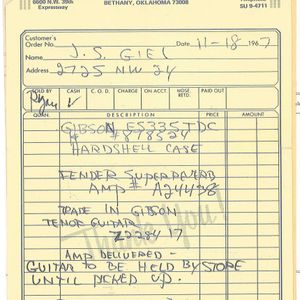 6600 N.W. 39th
Expressway
BETHANY, OKLAHOMA 73008
SU 9-4711
Customer's
Order No.
Date 11-18 1967
Name J. S. GIEL
Address 2725 NW 24
SOLD BY CASH C.O.D. CHARGE ON ACCT. MDSE. RETD. PAID OUT
QUAN. DESCRIPTION PRICE AMOUNT
GIBSON ES335TDC
# 878524
HARDSHELL CASE
FENDER SUPER REVERB
AMP # A24438
TRADE IN GIBSON
TENOR GUITAR
Z2284 17
Thank You!
AMP DELIVERED -
GUITAR TO BE HELD BY STORE
UNTIL PICKED UP.